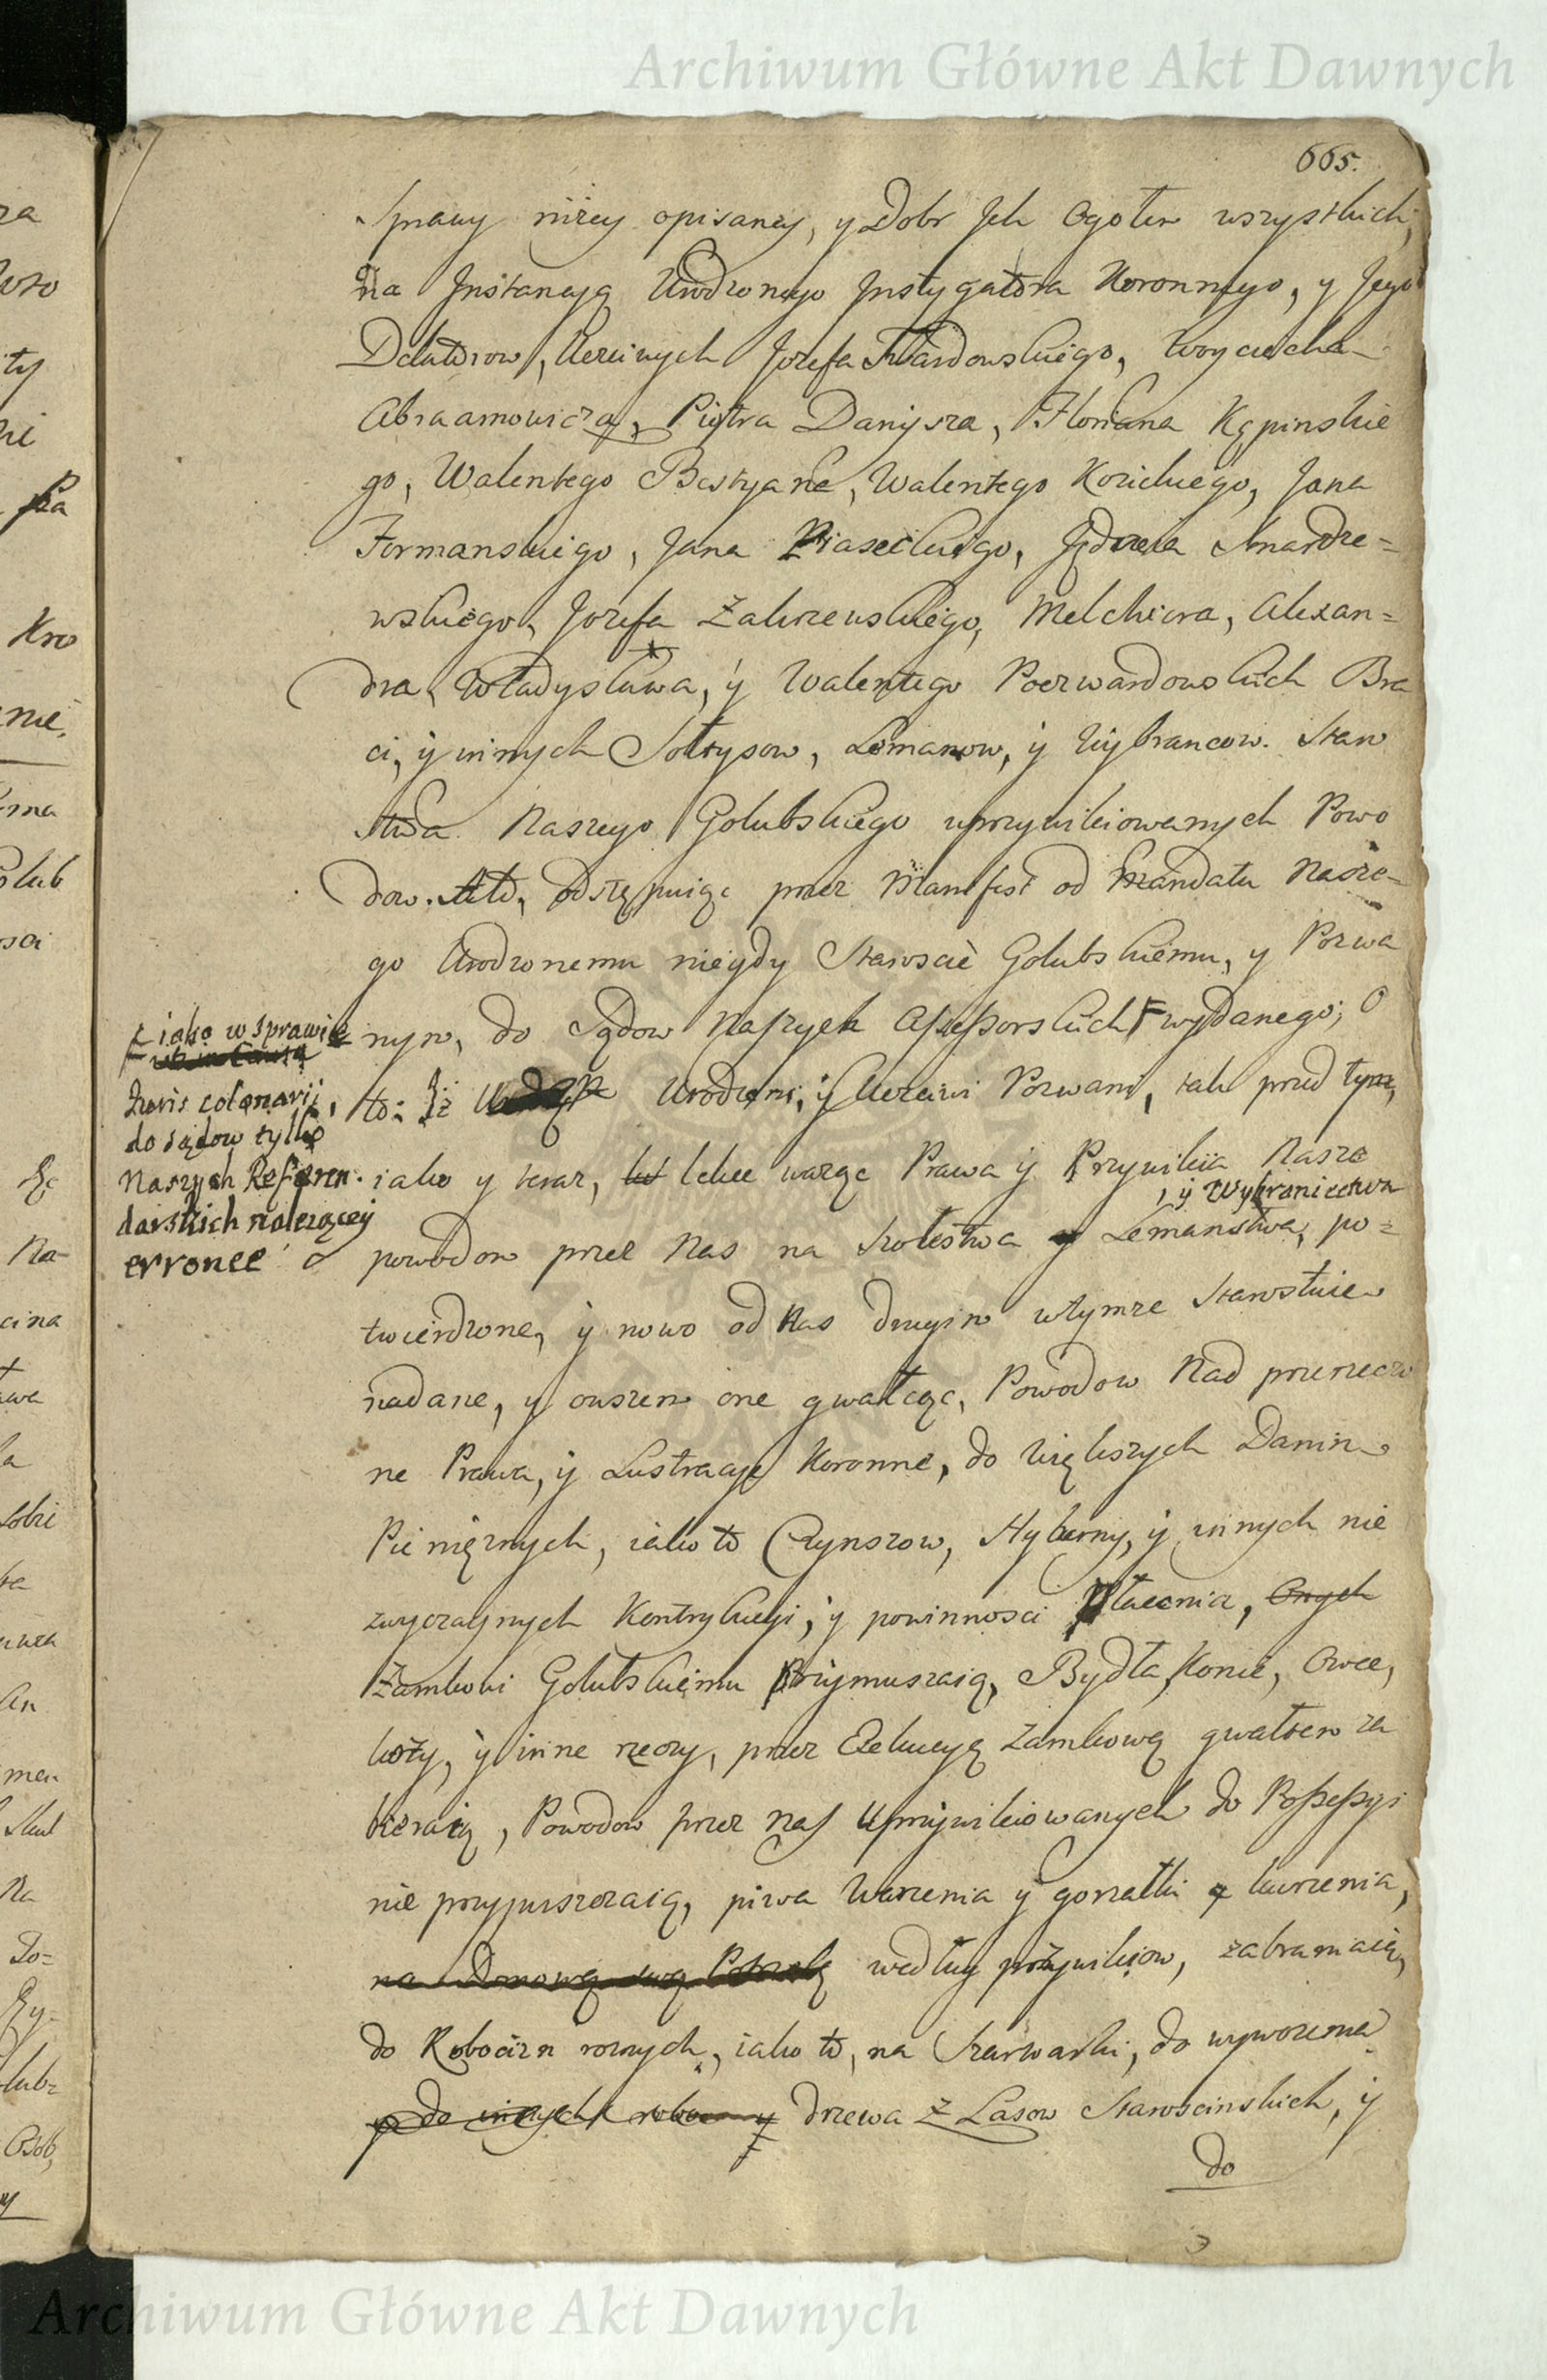 Archiwum Główne Akt Dawnych
665.
Sprawy niżey opisaney, y Dobr Jch Ogołem wszystkich,
na Jnstancyą Urodzonego Jnstygatora Koronnego, y Jego
Delatorow, Uczciwych Jozefa Twardowskiego, Woyciecha
Abraamowicza, Piotra Danysza, Floriana Kępinskie
go, Walentego Bastyana, Walentego Kozickiego, Jana
Formanskiego, Jana Piaseckiego, Jędrzeia
wskiego, Jozefa Zakrzewskiego, Melchiora, Alexan=
dra, Władysława, y Walentego Poczwardowskich Bra
ci, y innych Sołtysow, Lemanow, y Wybrancow. Staro
stwa Naszego Golubskiego uprzywileiowanych Powo
dow. Akto, odstępuiąc przez Manifest od Mandatu Nasze=
go Urodzonemu niegdy Staroscie Golubskiemu, y Pozwa
nym, do Sądow Naszych Assessorskich F wydanego; O
F iako w sprawie
Juris colonarij,
do sądow tylko
Naszych Referen.
darskich należącey
erronee
to: Jż Urodzeni, y Uczciwi Pozwani, tak przed tym,
iako y teraz, lekce ważąc Prawa y Przywileia Nasze
, y Wybraniectwa
powodom przez Nas na Szołestwa Lemanstwa, po=
twierdzone, y nowo od Nas drugim wtymze Starostwie
nadane, y owszem one gwałcąc, Powodow Nad przerzeczo
ne Prawa, y Lustracye Koronne, do większych Danin
Pieniężnych, iako to Czynszow, Hyberny, y innych nie
zwyczaynych Kontrybucyi, y powinnosci Płacenia, Onych
Zamkowi Golubskiemu Przymuszaią, Bydła, Konie, Owce,
kozy, y inne rzeczy, przez Exekucyą zamkową gwałtem za
bieraią, Powodow przez Nas Uprzywileiowanych do Possessyi
nie przypuszczaią, piwa Warzenia y gorzałki kurzenia,
na Domową swą Potrzebę według przywileiow, zabraniaią,
do Robocizn roznych, iako to, na Szarwarki, do wywożenia
y do innych robocizn y drzewa z Lasow Staroscinskich, y
do
Archiwum Główne Akt Dawnych